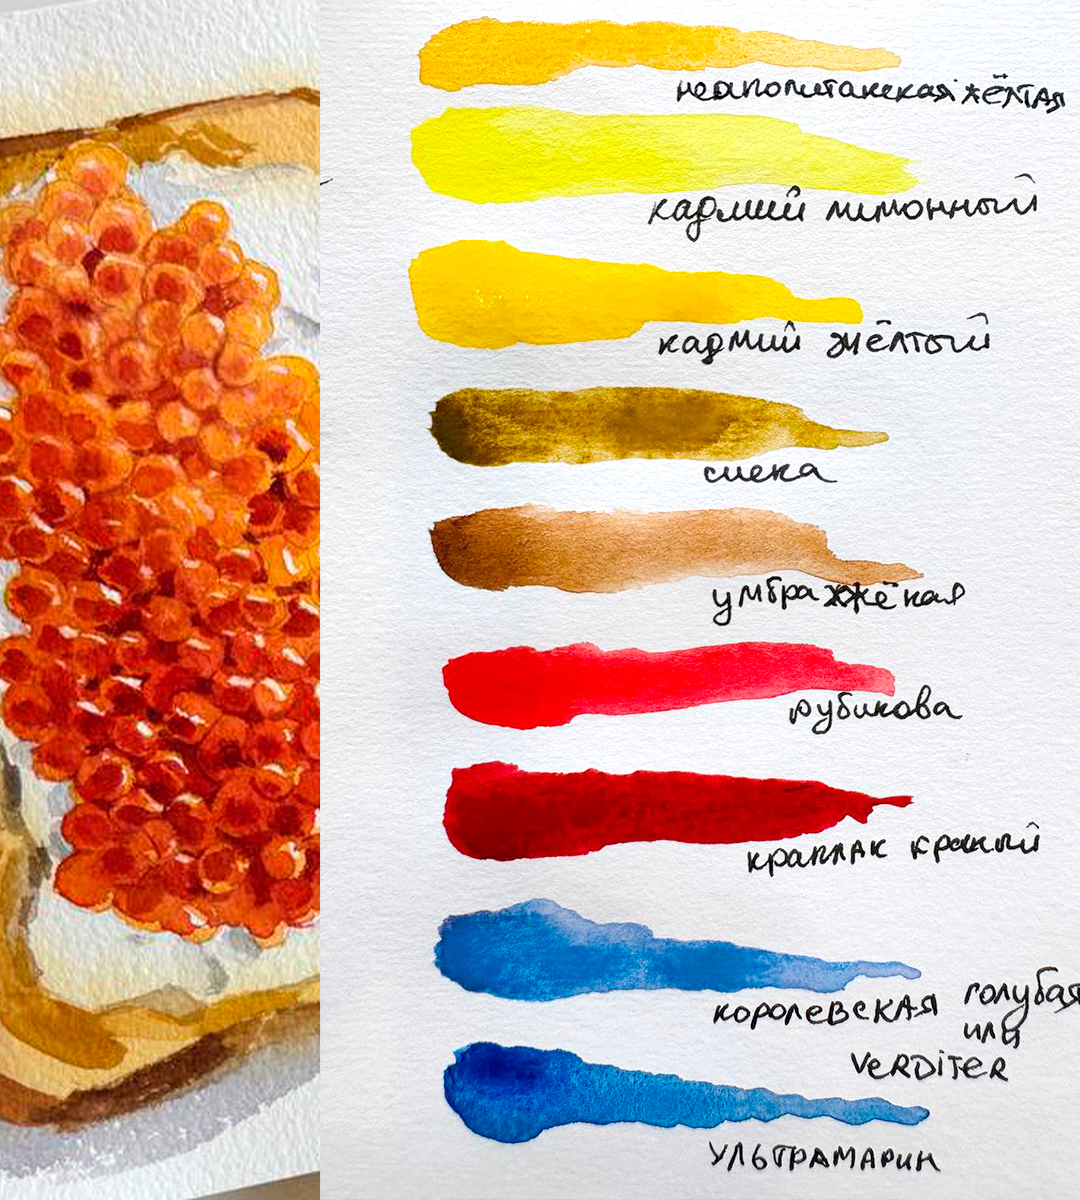 неаполитанская жёлтая
кадмий лимонный
кадмий жёлтый
сиена
умбра жжёная
рубинова
краплак краный
королевская голубая
или
VERDiTER
УЛЬТРАМАРИН